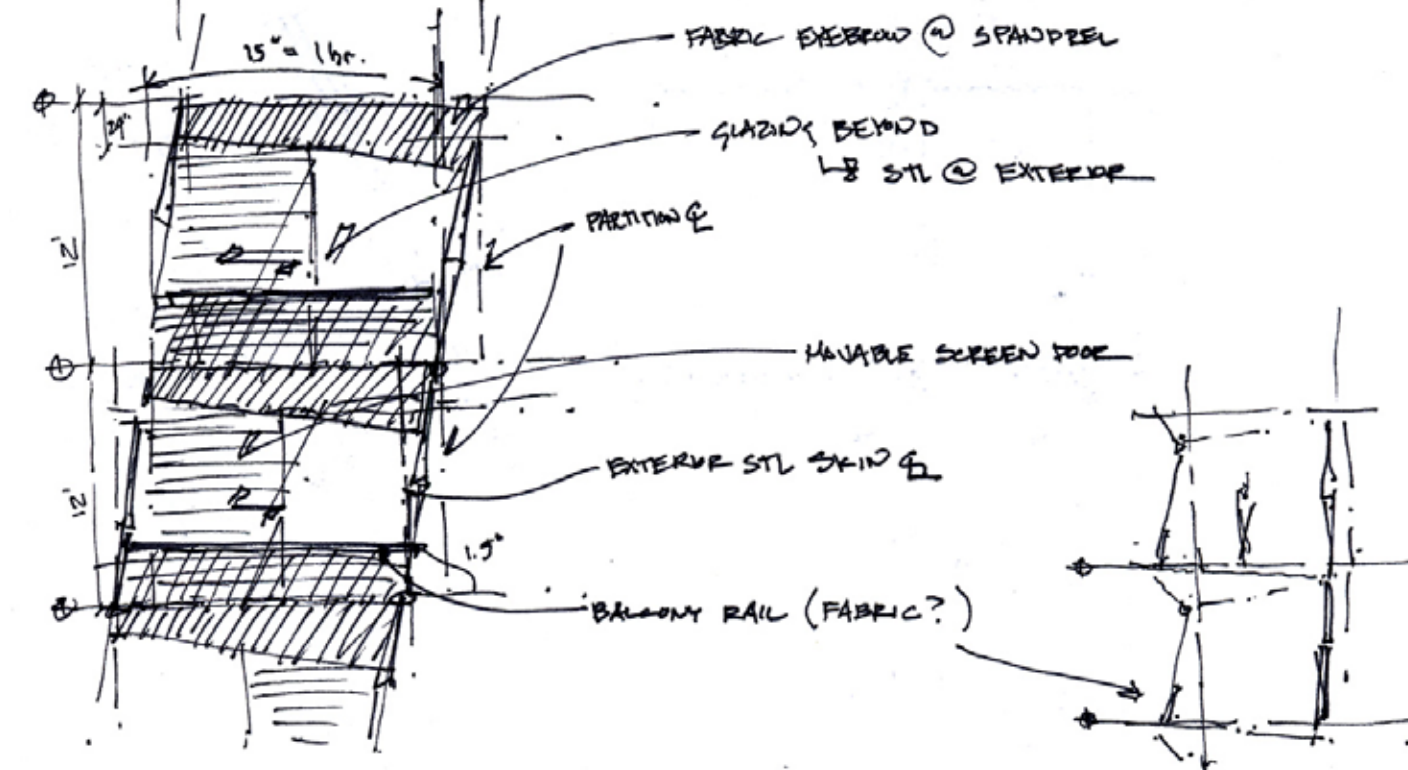 15° = 1 hr.
FABRIC EYEBROW @ SPANDREL
24"
GLAZING BEYOND
STL @ EXTERIOR
PARTITION ℄
12'
MOVABLE SCREEN DOOR
EXTERIOR STL SKIN ℄
12'
1.5°
BALCONY RAIL (FABRIC?)